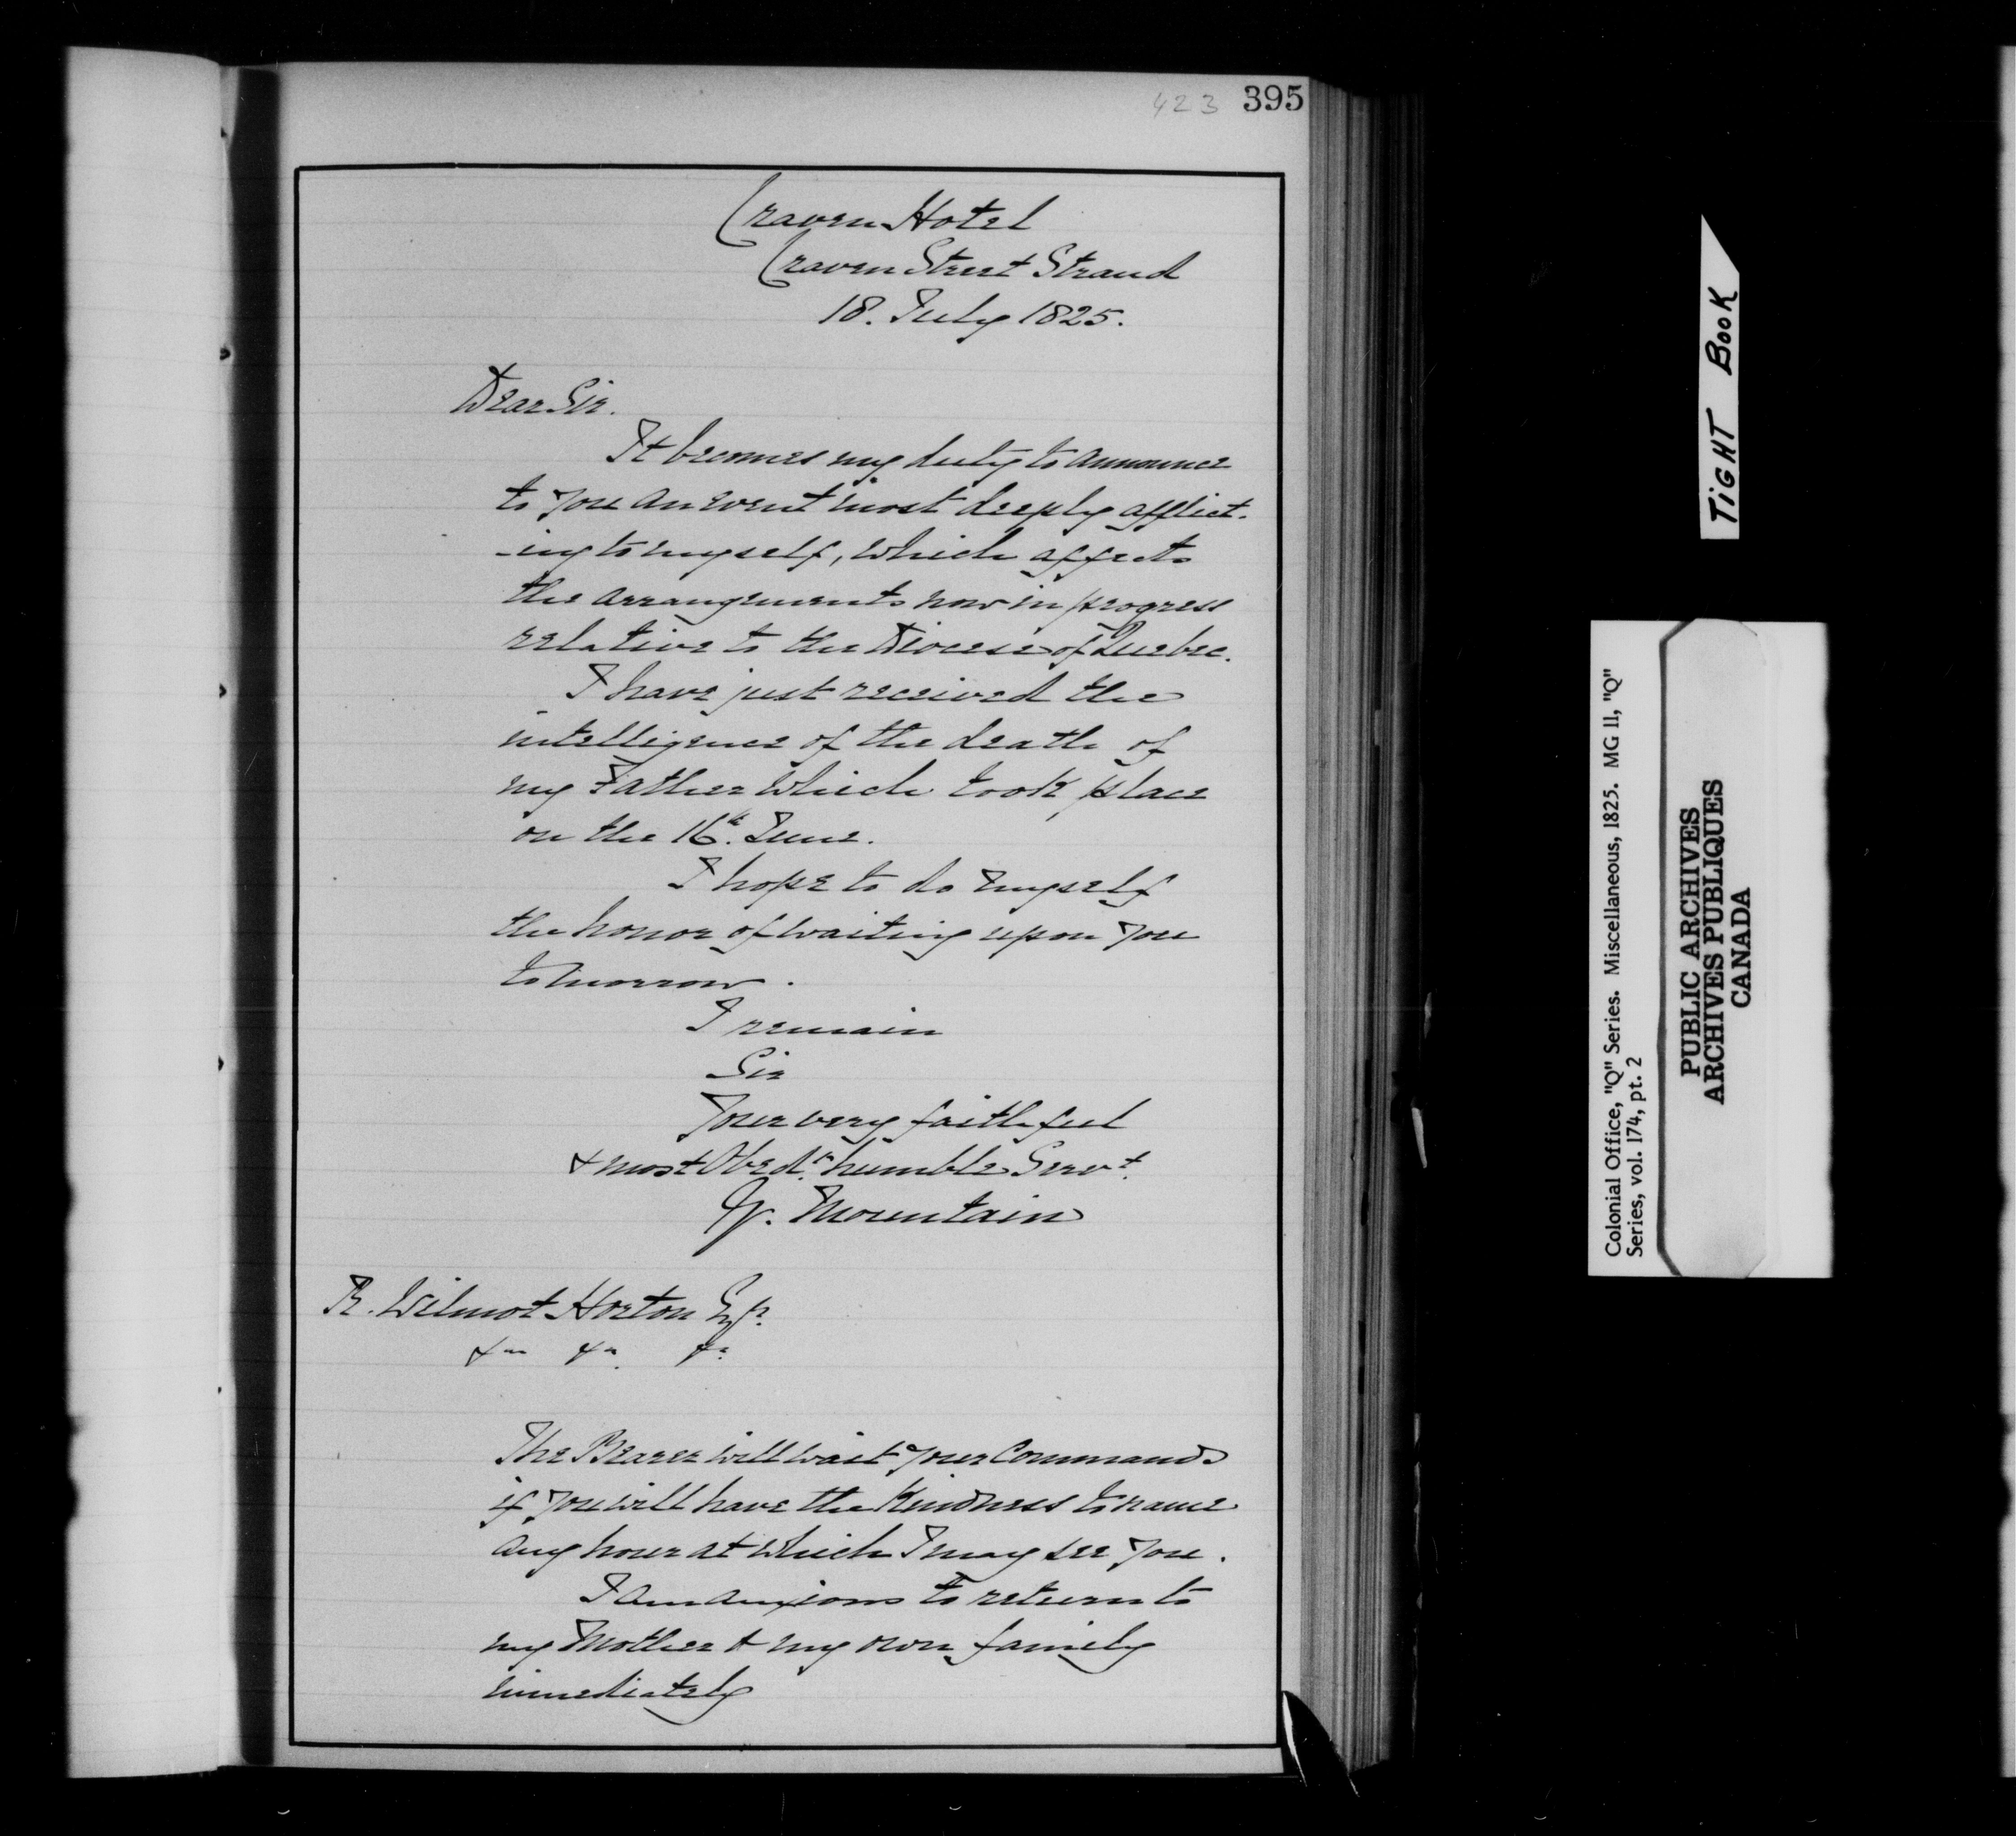 423 395
Craven Hotel
Craven Street Strand
18. July 1825.
Dear Sir.
It becomes my duty to announce
to you an event most deeply afflict-
-ing to myself, which affects
the arrangements now in progress
relative to the Diocese of Quebec.
I have just received the
intelligence of the death of
my Father which took place
on the 16th. June.
I hope to do myself
the honor of waiting upon you
tomorrow.
I remain
Sir
Your very faithful
& most Obedt. humble Servt.
Mountain
R. Wilmot Horton Esqr.
&c &c &c
The Bearer will wait your Commands
if you will have the Kindness to name
any hour at which I may see you.
I am anxious to return to
my Mother & my own family
immediately
TiGHT BooK
Colonial Office, "Q" Series. Miscellaneous, 1825. MG 11, "Q"
Series, vol. 174, pt. 2
PUBLIC ARCHIVES
ARCHIVES PUBLIQUES
CANADA